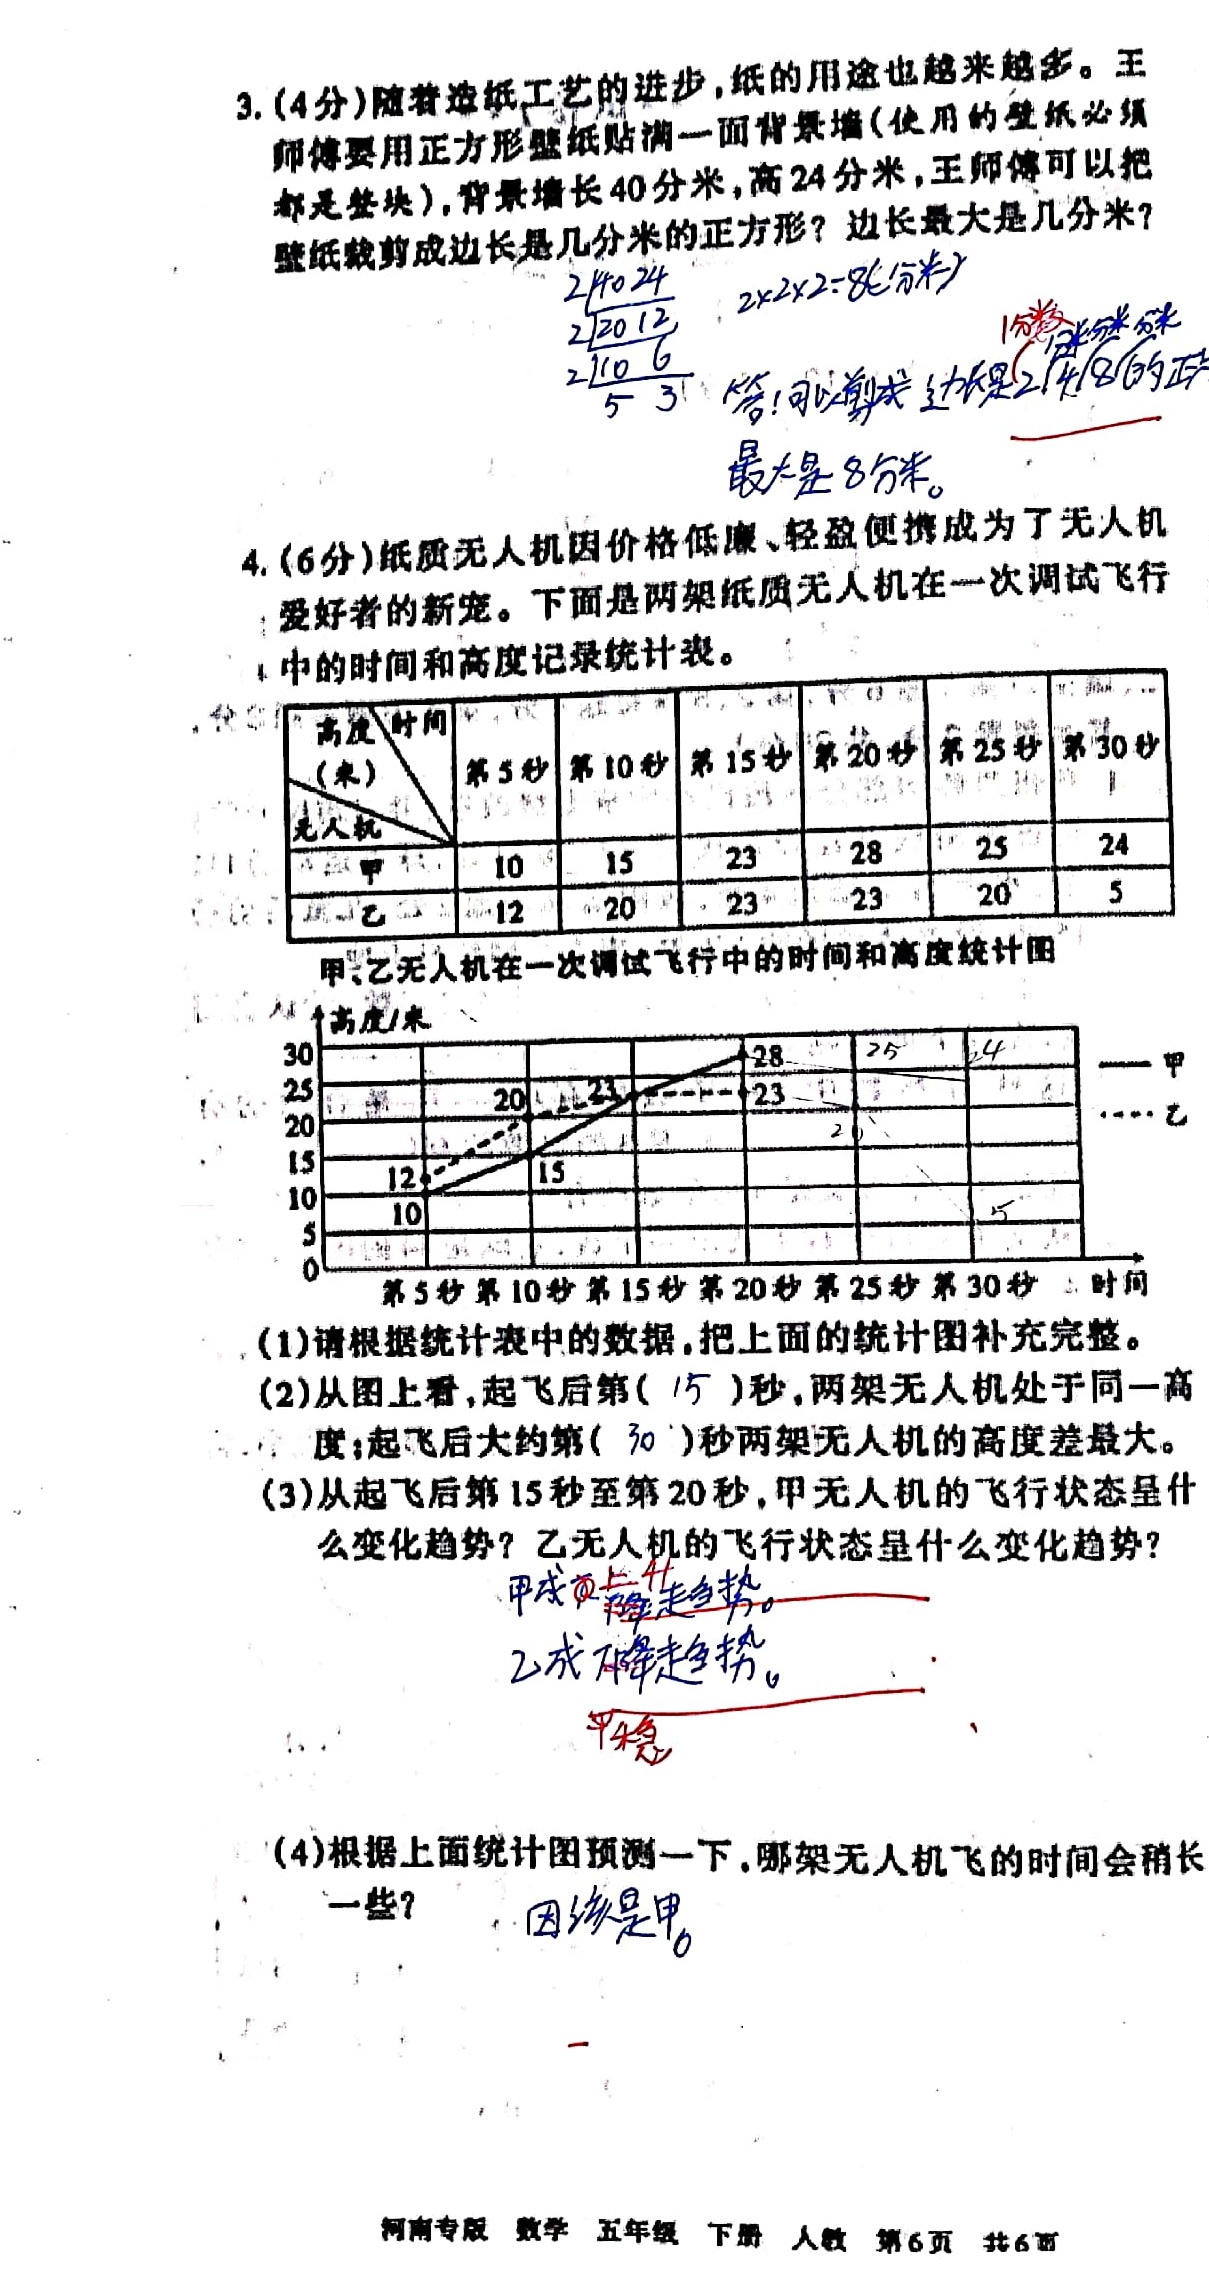 3.(4分)随着造纸工艺的进步,纸的用途也越来越多。王
师傅要用正方形壁纸贴满一面背景墙(使用的壁纸必须
都是整块),背景墙长40分米,高24分米,王师傅可以把
壁纸裁剪成边长是几分米的正方形?边长最大是几分米?
2 40 24
2×2×2=8(分米)
2 20 12
2 10 6
5 3
1分米
分米 分米 分米
答:可以剪成边长是2 4 8的正
最大是8分米。
4.(6分)纸质无人机因价格低廉、轻盈便携成为了无人机
爱好者的新宠。下面是两架纸质无人机在一次调试飞行
中的时间和高度记录统计表。
高度(米) 时间 无人机 第5秒 第10秒 第15秒 第20秒 第25秒 第30秒
甲 10 15 23 28 25 24
乙 12 20 23 23 20 5
甲、乙无人机在一次调试飞行中的时间和高度统计图
高度/米
30 28 25 24 甲
25 23 23
20 20 20 乙
15 12 15
10 10 5
5
0
第5秒 第10秒 第15秒 第20秒 第25秒 第30秒 时间
(1)请根据统计表中的数据,把上面的统计图补充完整。
(2)从图上看,起飞后第( 15 )秒,两架无人机处于同一高
度;起飞后大约第( 30 )秒两架无人机的高度差最大。
(3)从起飞后第15秒至第20秒,甲无人机的飞行状态呈什
么变化趋势?乙无人机的飞行状态呈什么变化趋势?
上升
甲成 降走趋势。
乙成下降走趋势。
平稳
(4)根据上面统计图预测一下,哪架无人机飞的时间会稍长
一些?
因该是甲。
河南专版 数学 五年级 下册 人教 第6页 共6页